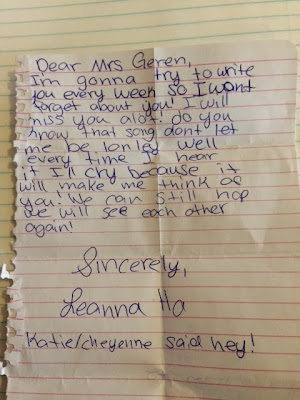 Dear Mrs Geren,
I'm gonna try to write
you every week so I wont
forget about you! I will
miss you alot! do you
know that song dont let
me be lonley well
every time I hear
it I'll cry because it
will make me think of
you! We can still hop
we will see each other
again!
Sincerely,
Leanna Ha
Katie/cheyenne said hey!